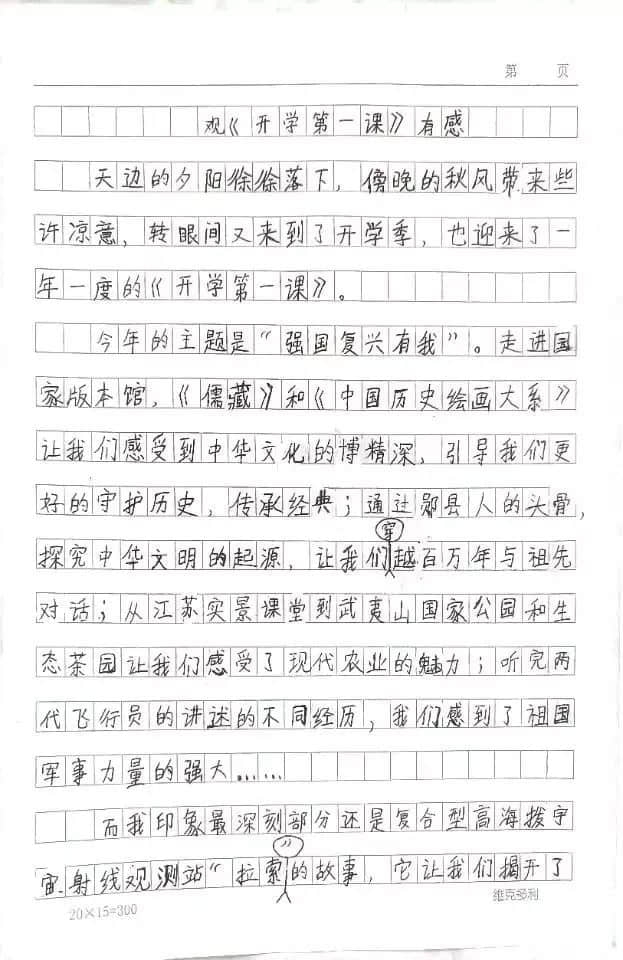 第 页
观《开学第一课》有感
天边的夕阳徐徐落下，傍晚的秋风带来些
许凉意，转眼间又来到了开学季，也迎来了一
年一度的《开学第一课》。
今年的主题是“强国复兴有我”。走进国
家版本馆，《儒藏》和《中国历史绘画大系》
让我们感受到中华文化的博精深，引导我们更
好的守护历史，传承经典；通过郧县人的头骨，
探究中华文明的起源，让我们穿越百万年与祖先
对话；从江苏实景课堂到武夷山国家公园和生
态茶园让我们感受了现代农业的魅力；听完两
代飞行员的讲述的不同经历，我们感到了祖国
军事力量的强大……
而我印象最深刻部分还是复合型高海拨宇
宙射线观测站“拉索”的故事，它让我们揭开了
20×15=300 维克多利